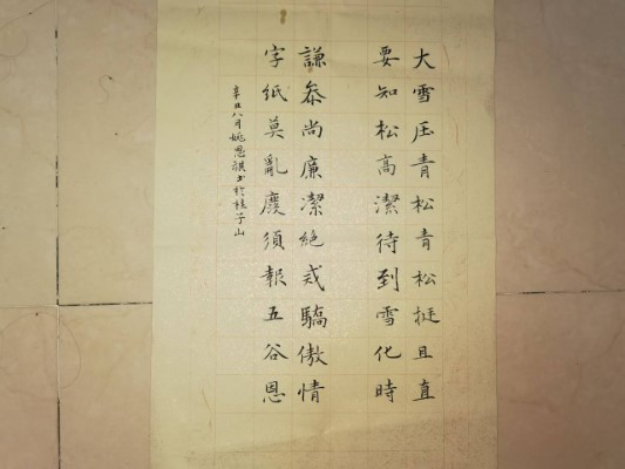 大雪压青松青松挺且直
要知松高潔待到雪化時
謙恭尚廉潔絕戒驕傲情
字紙莫亂廢須報五谷恩
辛丑八月姚恩祺书於桂子山